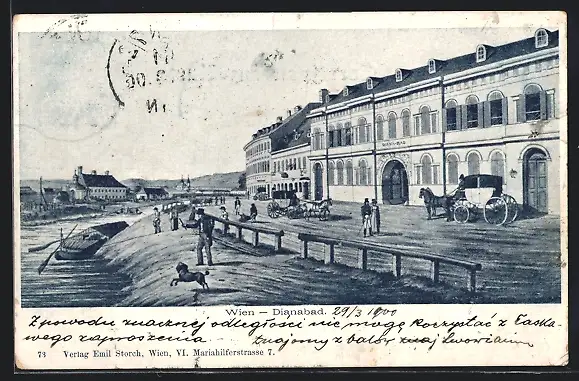 DIANA-BAD
Wien – Dianabad. 29/3 1900
Z powodu znacznej odległości nie mogę korzystać z łaska-
wego zaproszenia
73 Verlag Emil Storch, Wien, VI. Mariahilferstrasse 7.